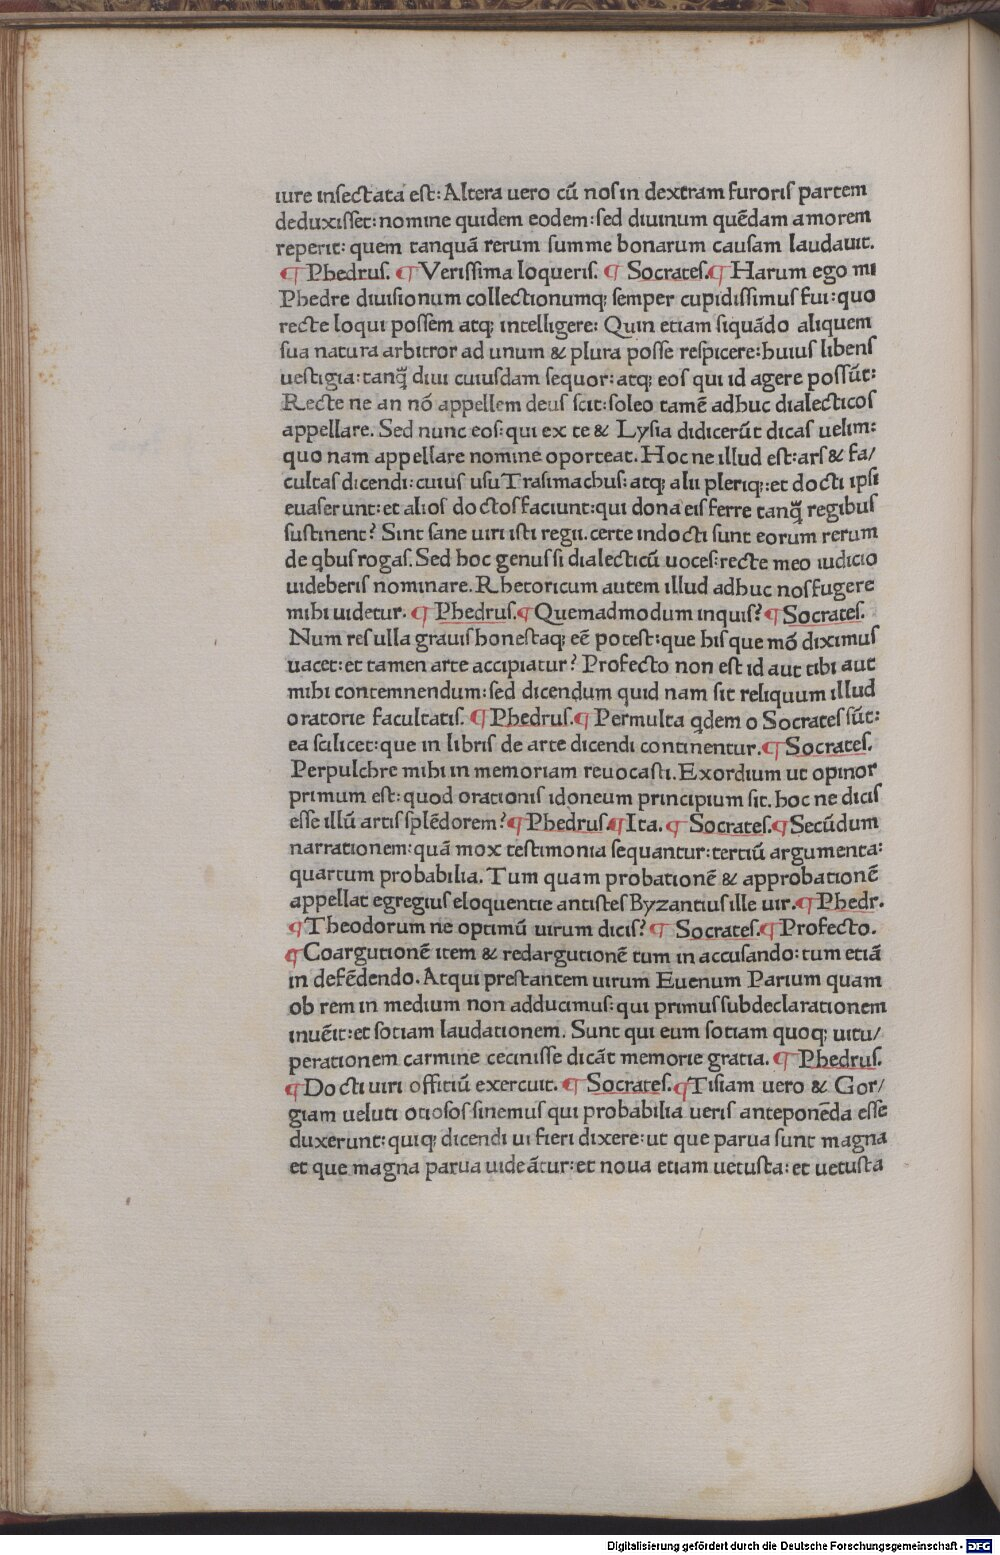 iure insectata est: Altera uero cū nos in dextram furoris partem
deduxisset: nomine quidem eodem: sed diuinum quēdam amorem
reperit: quem tanquā rerum summe bonarum causam laudauit.
¶ Phedrus. ¶ Verissima loqueris. ¶ Socrates. ¶ Harum ego mi
Phedre diuisionum collectionumq; semper cupidissimus fui: quo
recte loqui possem atq; intelligere: Quin etiam siquādo aliquem
sua natura arbitror ad unum & plura posse respicere: huius libens
uestigia: tanq̃ diui cuiusdam sequor: atq; eos qui id agere possūt:
Recte ne an nō appellem deus scit: soleo tamē adhuc dialecticos
appellare. Sed nunc eos: qui ex te & Lysia didicerūt dicas uelim:
quo nam appellare nomine oporteat. Hoc ne illud est: ars & fa/
cultas dicendi: cuius usu Trasimachus: atq; alii pleriq;: et docti ipsi
euaserunt: et alios doctos faciunt: qui dona eis ferre tanq̃ regibus
sustinent? Sint sane uiri isti regii. certe indocti sunt eorum rerum
de qbus rogas. Sed hoc genus si dialecticū uoces: recte meo iudicio
uideberis nominare. Rhetoricum autem illud adhuc nos fugere
mihi uidetur. ¶ Phedrus. ¶ Quemadmodum inquis? ¶ Socrates.
Num res ulla grauis honestaq; eē potest: que his que mō diximus
uacet: et tamen arte accipiatur? Profecto non est id aut tibi aut
mihi contemnendum: sed dicendum quid nam sit reliquum illud
oratorie facultatis. ¶ Phedrus. ¶ Permulta qdem o Socrates sūt:
ea scilicet: que in libris de arte dicendi continentur. ¶ Socrates.
Perpulchre mihi in memoriam reuocasti. Exordium ut opinor
primum est: quod orationis idoneum principium sit. hoc ne dicis
esse illū artis splēdorem? ¶ Phedrus. ¶ Ita. ¶ Socrates. ¶ Secūdum
narrationem: quā mox testimonia sequantur: tertiū argumenta:
quartum probabilia. Tum quam probationē & approbationē
appellat egregius eloquentie antistes Byzantius ille uir. ¶ Phedr.
¶ Theodorum ne optimū uirum dicis? ¶ Socrates. ¶ Profecto.
¶ Coargutionē item & redargutionē tum in accusando: tum etiā
in defēdendo. Atqui prestantem uirum Euenum Parium quam
ob rem in medium non adducimus: qui primus subdeclarationem
inuēit: et sotiam laudationem. Sunt qui eum sotiam quoq; uitu/
perationem carmine cecinisse dicāt memorie gratia. ¶ Phedrus.
¶ Docti uiri offitiū exercuit. ¶ Socrates. ¶ Tisiam uero & Gor/
giam ueluti otiosos sinemus qui probabilia ueris anteponēda esse
duxerunt: quiq; dicendi ui fieri dixere: ut que parua sunt magna
et que magna parua uideātur: et noua etiam uetusta: et uetusta
Digitalisierung gefördert durch die Deutsche Forschungsgemeinschaft - DFG